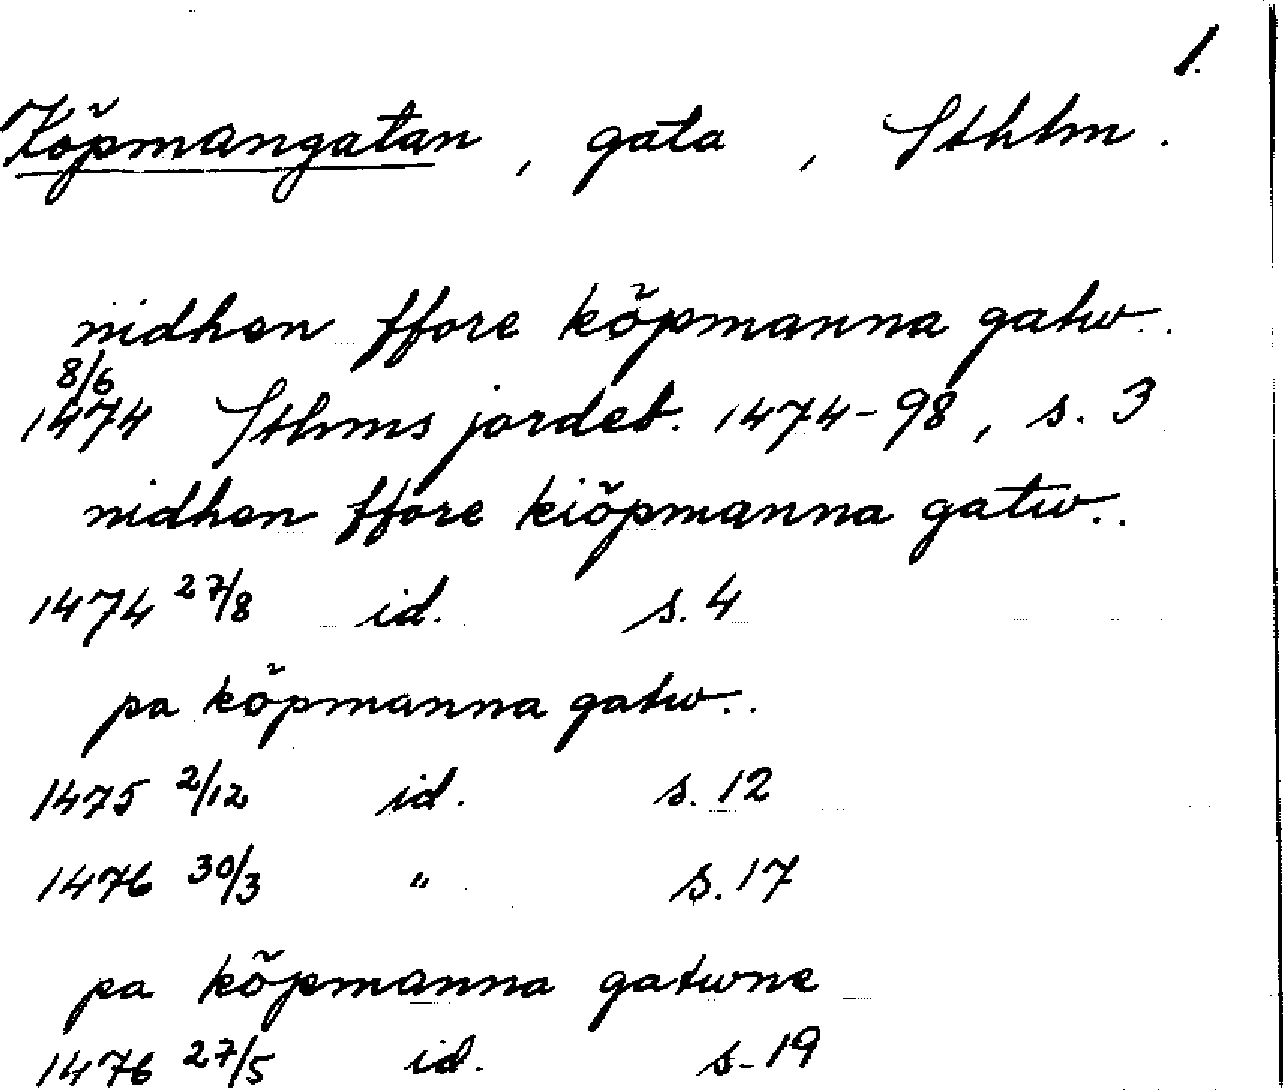 1.
Köpmangatan, gata, Sthlm.
nidhen ffore köpmanna gatw..
8/6
1474 Sthms jordeb. 1474-98, s. 3
nidhen ffore kiöpmanna gatw..
1474 27/8 id. s. 4
pa köpmanna gatw..
1475 2/12 id. s. 12
1476 30/3 " s. 17
pa köpmanna gatwne
1476 27/5 id. s. 19